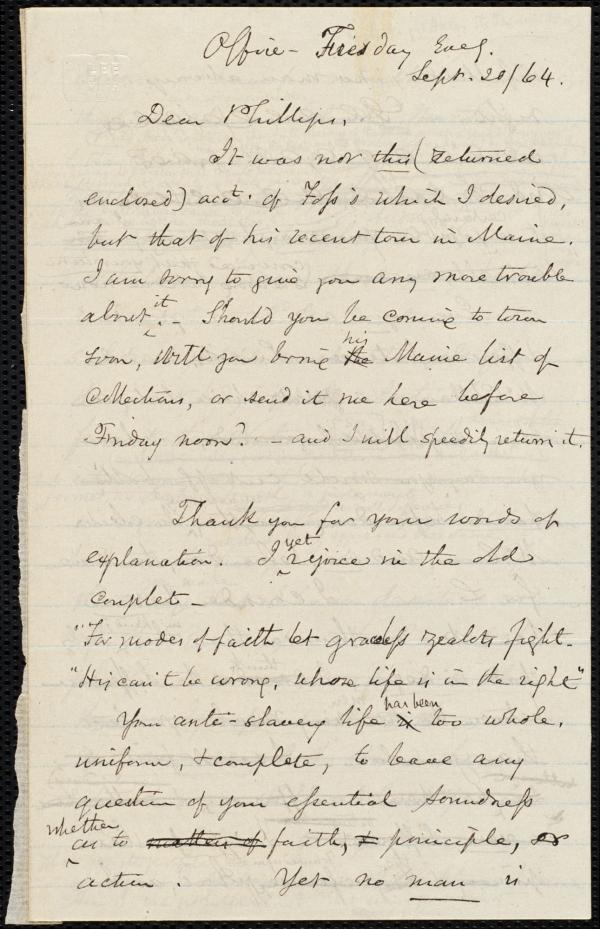 Office - Tuesday Eveg.
Sept. 20/64.
Dear Phillips,
It was not this (returned
enclosed) acct. of Foss's which I desired,
but that of his recent tour in Maine.
I am sorry to give you any more trouble
about it. - Should you be coming to town
soon, will you bring his the Maine list of
Collections, or send it me here before
Friday noon? - and I will speedily return it.
Thank you for your words of
explanation. I yet rejoice in the old
couplet -
"For modes of faith let graceless zealots fight -
"His can't be wrong, whose life is in the right"
Your anti-slavery life has been is too whole,
uniform, & complete, to leave any
question of your essential soundness
whether as to matters of faith, & principle, or
action. Yet no man is